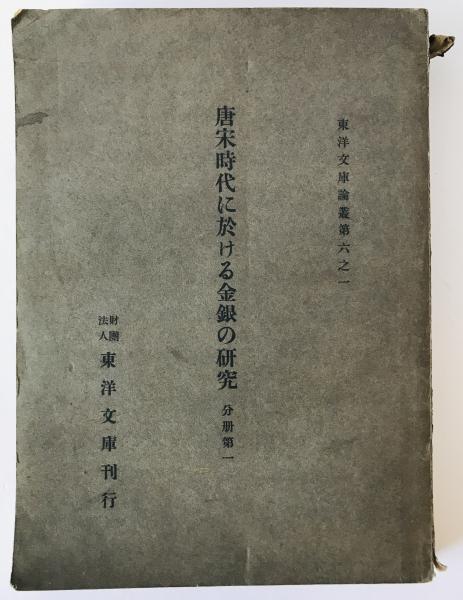 東洋文庫論叢第六之一
唐宋時代に於ける金銀の研究 分册第一
財團法人 東洋文庫刊行